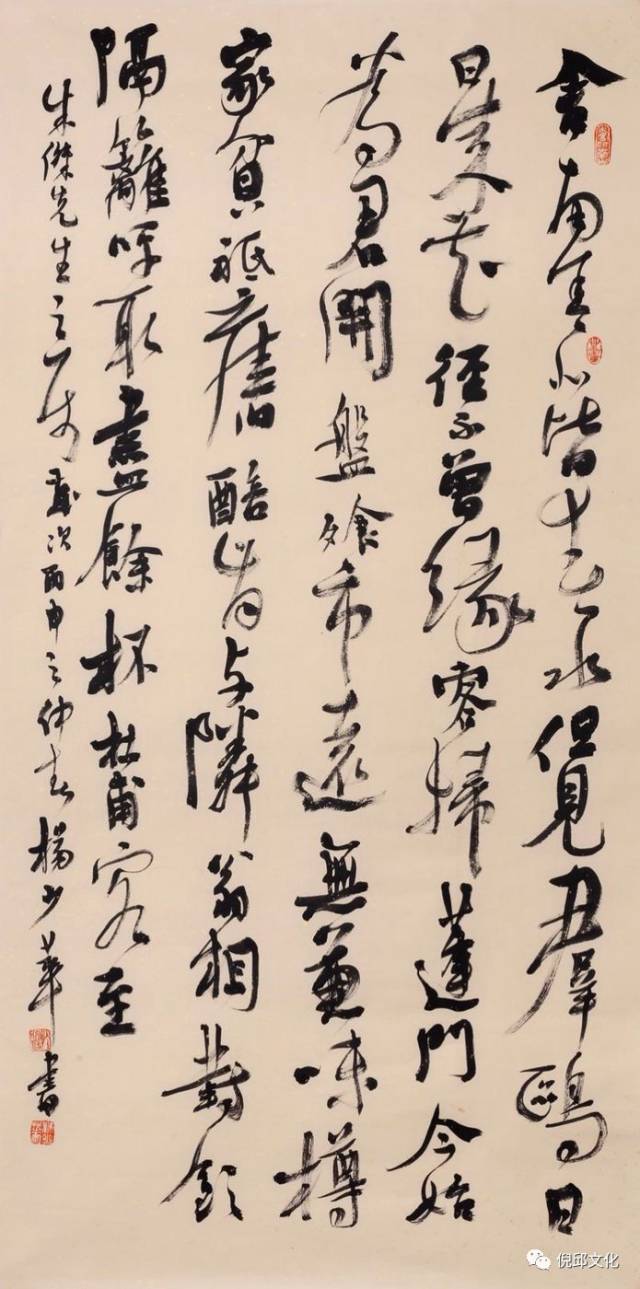 舍南舍北皆春水但見羣鷗日
日來花徑不曾緣客掃蓬門今始
為君開盤飧市遠無兼味樽
家貧祗舊醅肯与隣翁相對飲
隔籬呼取盡餘杯杜甫客至
朱傑先生之属歲次丙申之仲春楊少華書
倪邱文化